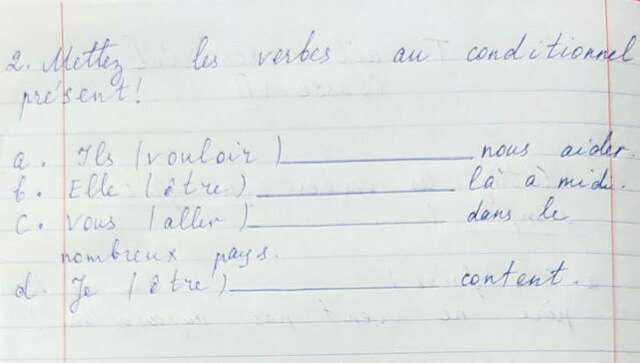 2. Mettez les verbes au conditionnel
présent!
a. Ils (vouloir) __________ nous aider.
b. Elle (être) __________ là à midi.
c. Vous (aller) __________ dans le
nombreux pays.
d. Je (être) __________ content.